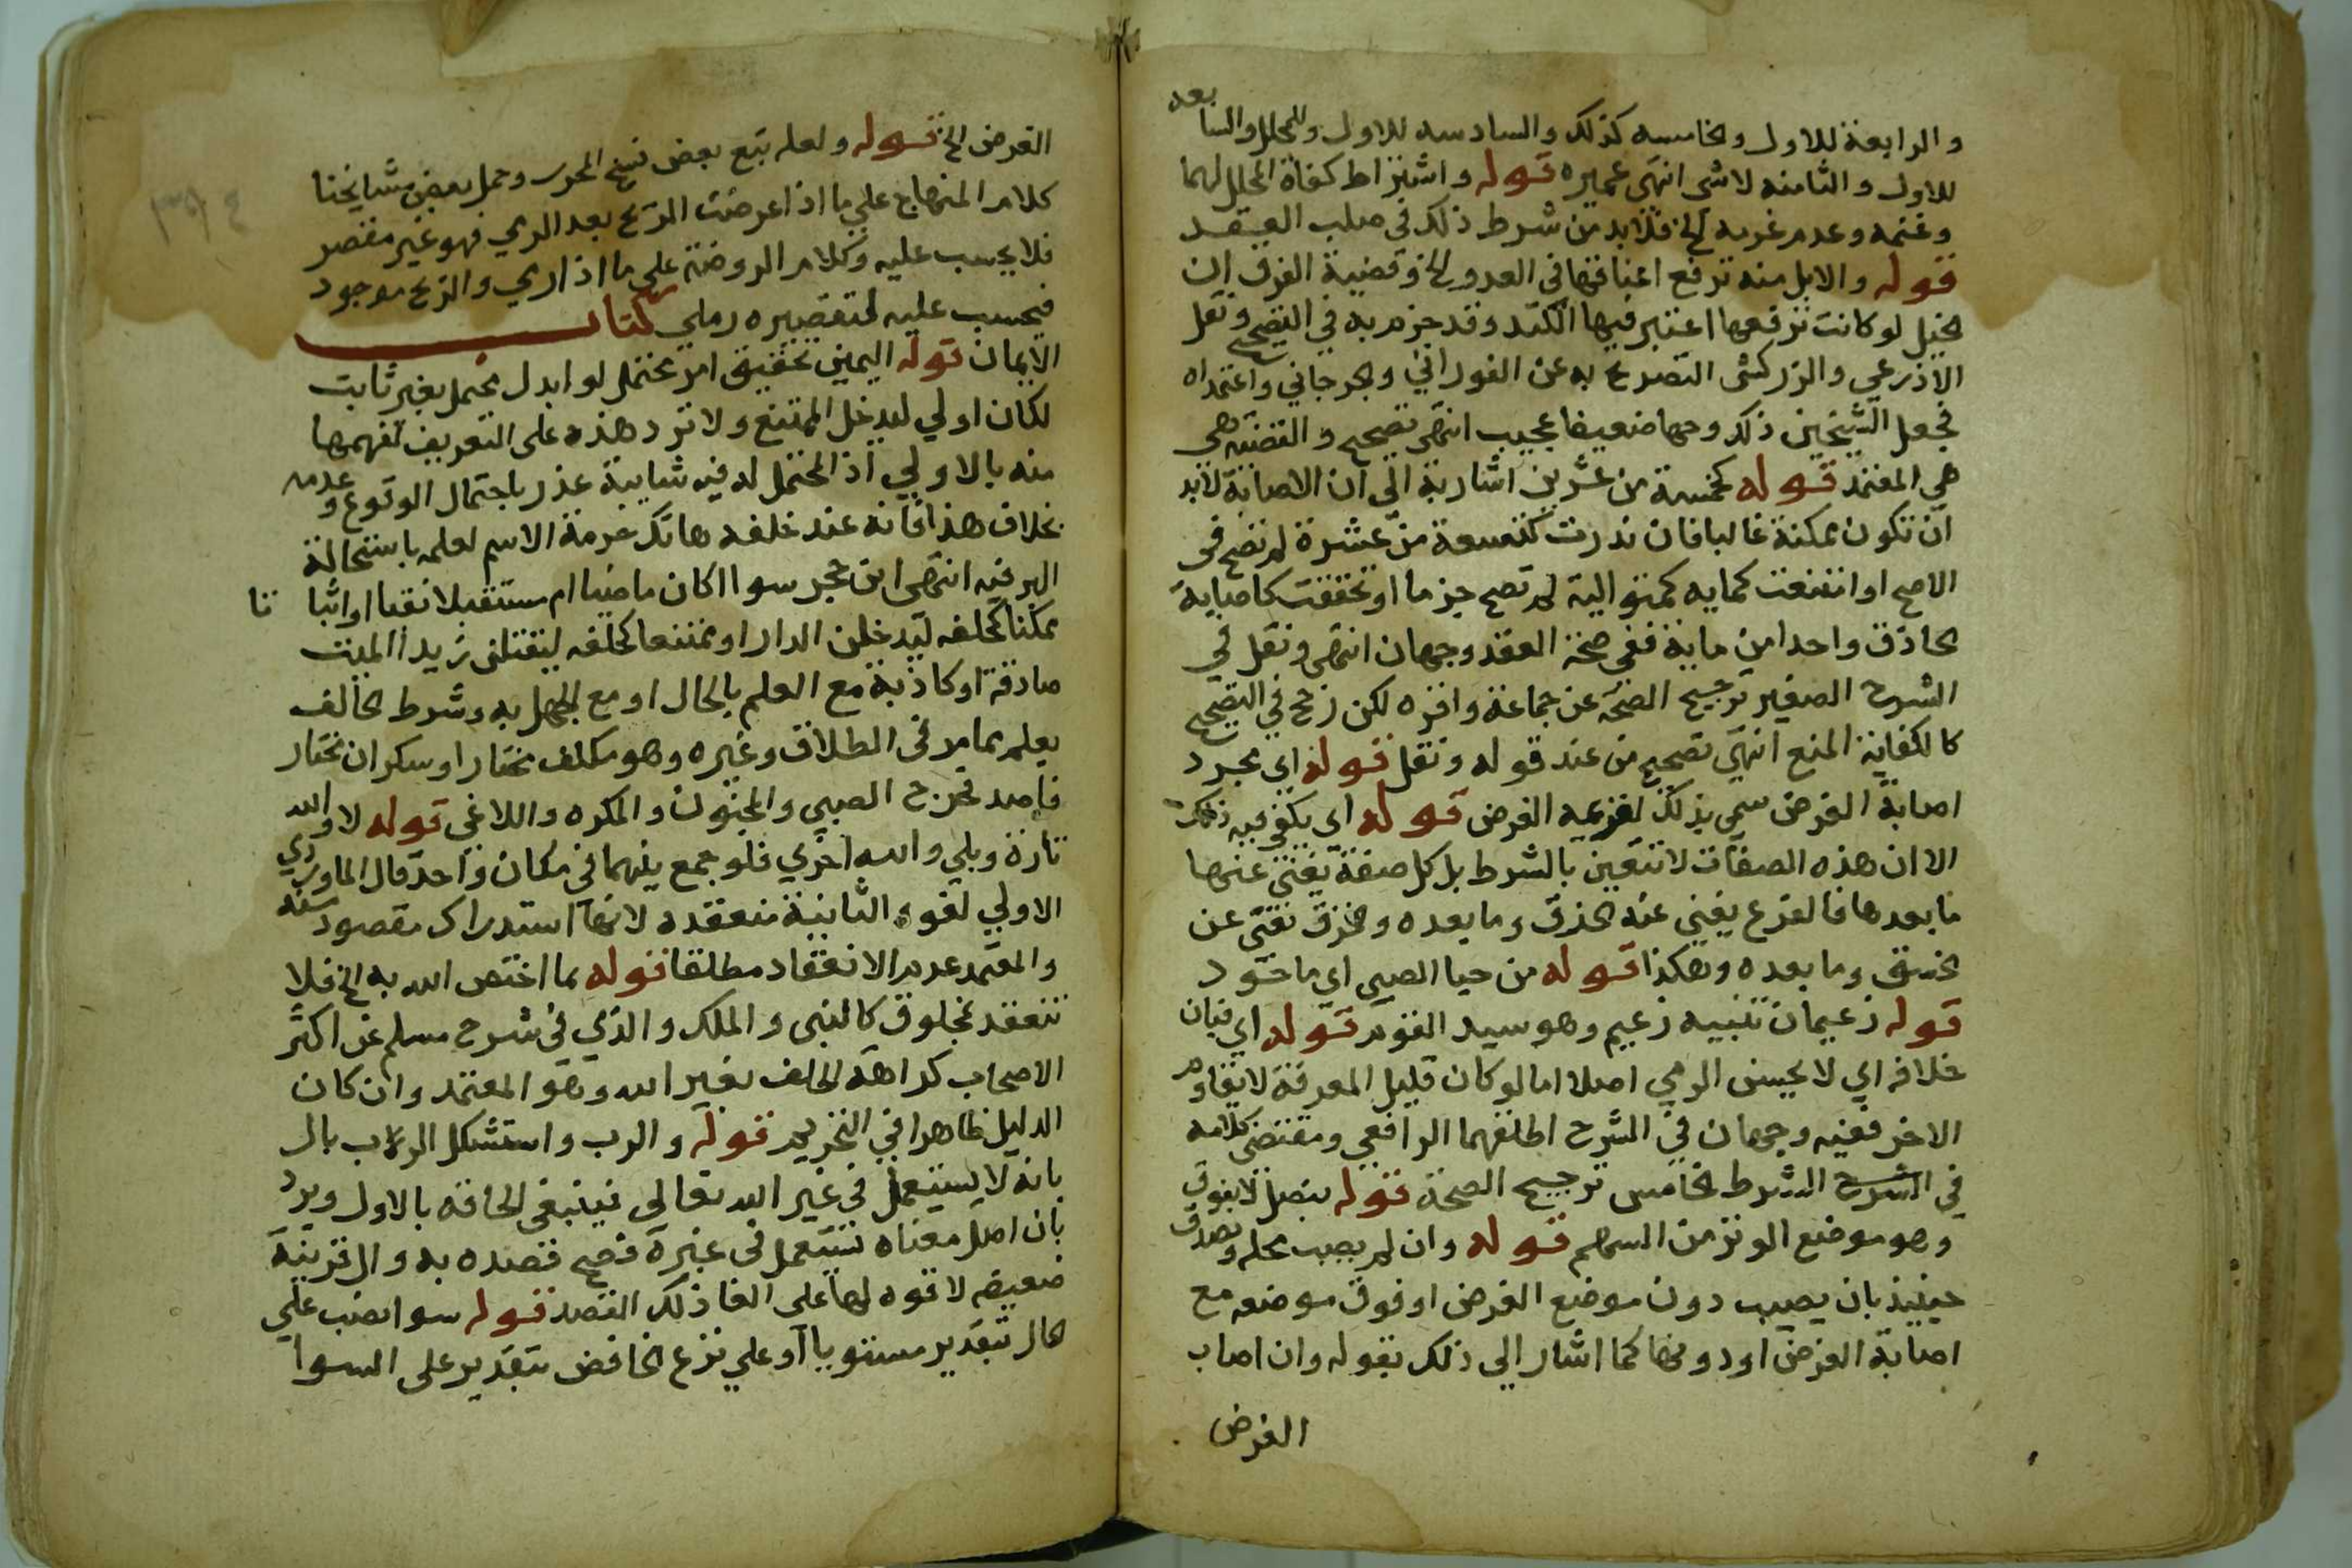 والرابعة للاول والخامسه كذلك والسادسه للاول وللمحلل والسابعه
للاول والثامنه لاشى انتهى عميره قوله واشتراط كفاة المحلل لهما
وغنمه وعدم غرمه الخ فلابد من شرط ذلك فى صلب العقد
قوله والابل منه ترفع اعناقها فى العدو الخ وقضية الفرق ان
الخيل لو كانت ترفعها اعتبر فيها الكتد وقد جزم به في التصحيح ونقل
الاذرعي والزركشى التصريح به عن الفوراني والجرجاني واعتمداه
فجعل الشيخين ذلك وجها ضعيفا عجيب انتهى تصحيح والقضية هى
هي المعتمد قوله كخمسة من عشرين اشار به الى ان الاصابة لابد
ان تكون ممكنة غالبا فان ندرت كتسعة من عشرة لم تصح فى
الاصح او امتنعت كمايه كمتواليه لم تصح جزما او تحققت كاصابة
حاذق واحدا من ماية ففى صحة العقد وجهان انتهى ونقل في
الشرح الصغير ترجيح الصحة عن جماعة واقره لكن رجح في التصحيح
كالكفاية المنع انتهى تصحيح من عند قوله ونقل قوله اي مجرد
اصابة الغرض سمى بذلك لقرعه الغرض قوله اى يكفى فيه ذلك
الا ان هذه الصفات لا تتعين بالشرط بل كل صفة يغنى عنها
ما بعدها فالقرع يغنى عنه الخزق وما بعده والخزق يغنى عن
الخسق وما بعده وهكذا قوله من حبا الصبى اى ماخوذ
قوله زعيمان تثنيه زعيم وهو سيد القوم قوله اي فبان
خلافه اي لا يحسن الرمي اصلا اما لو كان قليل المعرفة لا يقاوم
الاخر ففيه وجهان في الشرح اطلقهما الرافعي ومقتضى كلامه
في الشرح الشرط الخامس ترجيح الصحة قوله بنصل لا بفوق
وهو موضع الوتر من السهم قوله وان لم يصب محله ويصدق
حينيذ بان يصيب دون موضع الغرض او فوق موضعه مع
اصابة الغرض او دونها كما اشار الى ذلك بقوله وان اصاب
الغرض
الغرض الخ قوله ولعله تبع بعض نسخ المحرر وحمل بعض مشايخنا
كلام المنهاج على ما اذا عرضت الريح بعد الرمي فهو غير مقصر
فلا يحسب عليه وكلام الروضة على ما اذا رمي والريح موجود
فيحسب عليه لتقصيره رملي كتاب
الايمان قوله اليمين تحقيق امر محتمل لو ابدل محتمل بغير ثابت
لكان اولي ليدخل الممتنع ولا ترد هذه على التعريف لفهمها
منه بالاولي اذ المحتمل له فيه شايبة عذر باحتمال الوقوع وعدمه
بخلاف هذا فانه عند حلفه هاتك حرمة الاسم لعلمه باستحالة
البر فيه انتهى ابن حجر سوا اكان ماضيا ام مستقبلا نفيا او اثباتا
ممكنا كحلفه ليدخلن الدار او ممتنعا كحلفه ليقتلن زيدا الميت
صادقة او كاذبة مع العلم بالحال او مع الجهل به وشرط الحالف
يعلم مما مر فى الطلاق وغيره وهو مكلف مختار او سكران مختار
قاصد فخرج الصبي والمجنون والمكره واللاغى قوله لا والله
تارة وبلي والله اخري فلو جمع بينهما في مكان واحد قال الماوردي
الاولي لغو والثانية منعقده لانها استدراك مقصود منه
والمعتمد عدم الانعقاد مطلقا قوله بما اختص الله به الخ فلا
تنعقد بمخلوق كالنبى والملك والذي في شرح مسلم عن اكثر
الاصحاب كراهة الحلف بغير الله وهو المعتمد وان كان
الدليل ظاهرا في التحريم قوله والرب واستشكل الرب بال
بانه لا يستعمل في غير الله تعالى فينبغى الحاقه بالاول ويرد
بان اصل معناه يستعمل فى غيره فصح قصده به وال قرينة
ضعيفه لا قوه لها على الغا ذلك القصد قوله سوا نصب علي
الحال بتقدير مستويا او علي نزع الخافض بتقدير على السوا